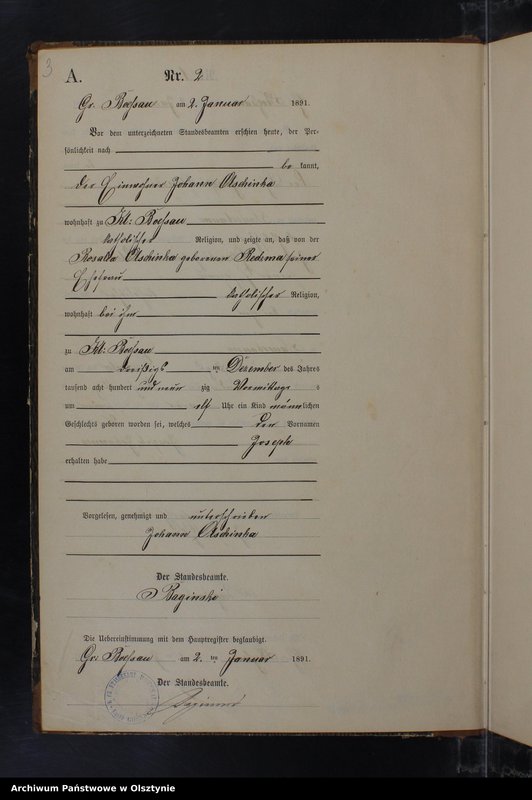 3
A. Nr. 2
Gr. Bössau am 2. Januar 1891.
Vor dem unterzeichneten Standesbeamten erschien heute, der Per-
sönlichkeit nach
be kannt,
der Einwohner Johann
wohnhaft zu Kl: Bössau
katholischer Religion, und zeigte an, daß von der
Rosalia geborenen seiner
Ehefrau
katholischer Religion,
wohnhaft bei ihm
zu Kl: Bössau
am dreißigsten Dezember des Jahres
tausend acht hundert und neun zig Vormittags
um elf Uhr ein Kind männlichen
Geschlechts geboren worden sei, welches den Vornamen
Joseph
erhalten habe
Vorgelesen, genehmigt und unterschrieben
Johann
Der Standesbeamte.
Baginski
Die Uebereinstimmung mit dem Hauptregister beglaubigt.
Gr. Bössau am 2. ten Januar 1891.
Der Standesbeamte.
Baginski
Archiwum Państwowe w Olsztynie